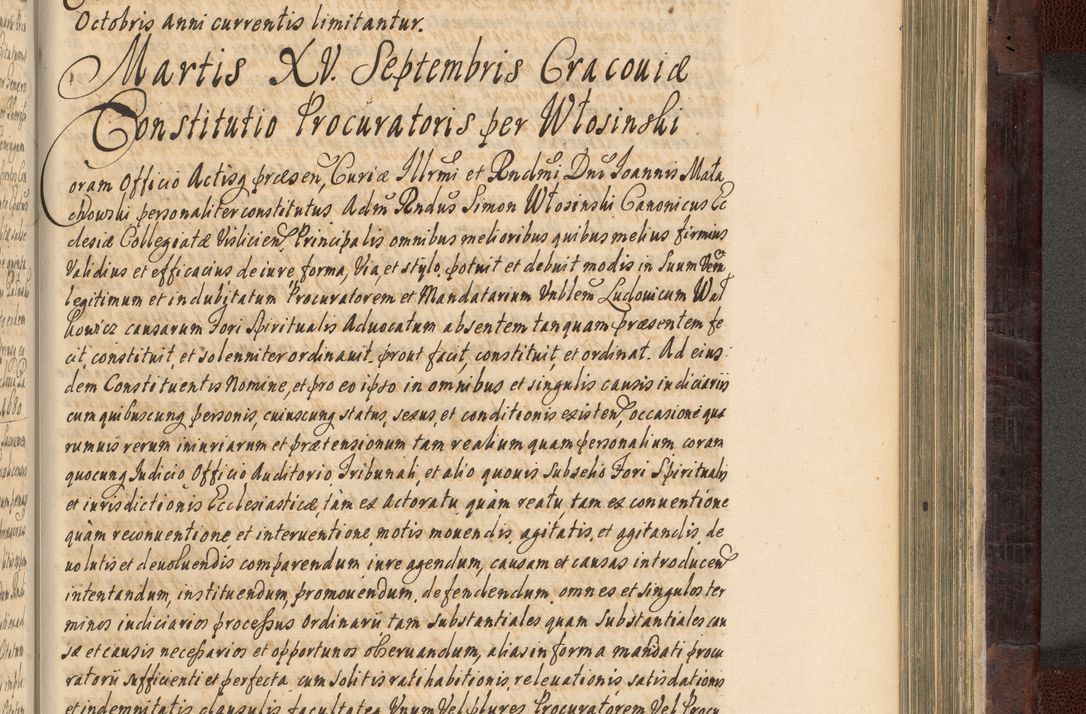 Octobris anni currentis limitantur.
Martis XV. Septembris Cracouiæ
Constitutio Procuratoris per Włosinski
Coram Officio Actisq præsen, Curiæ Illrmi et Rndmi Dni Joannis Mała
chowski personaliter constitutus Adm Rndus Simon Włosinski Canonicus Ec
clesiæ Collegiatæ Vislicien, Principalis omnibus melioribus quibus melius firmius
Validius et efficacius de iure, forma, Via, et stylo, potuit et debuit modis in Suum Verū
legitimum et indubitatum Procuratorem et Mandatarium Vnblem Ludouicum Wał
kowicz causarum Fori Spiritualis Aduocatum absentem tanquam præsentem fe
cit, constituit, et solenniter ordinauit, prout facit, constituit, et ordinat. Ad eius
dem Constituentis Nomine, et pro eo ipso in omnibus et singulis causis iudiciariis
cum quibuscunq personis, cuiuscunq status, sexus, et conditionis existen, occasione qua
rumuis rerum iniuriarum et prætensionum tam realium quam personalium coram
quocunq Judicio Officio Auditorio, Tribunali, et alio quouis Subselio Fori Spiritualis
et iurisdictionis Ecclesiasticæ, tàm ex Actoratu quàm reatu, tam ex conuentione
quàm reconuentione, et interuentione motis mouendis, agitatis, et agitandis de
uolutis et deuoluendis comparendum, iure agendum, causam et causas introducen
intentandum, instituendum, promouendum, defendendum, omnes et singulos ter
minos iudiciarios processus Ordinarii tam Substantiales quam Substantiales cau
sæ et causis necessarios et opportunos obseruandum, alias in forma mandati procu
ratorii sufficienti et perfecta cum solitis ratihabitionis, releuationis, satisdationis
et indemnitatis clausulis facultatea Vnum Vel plures Procuratorem Vel Procu